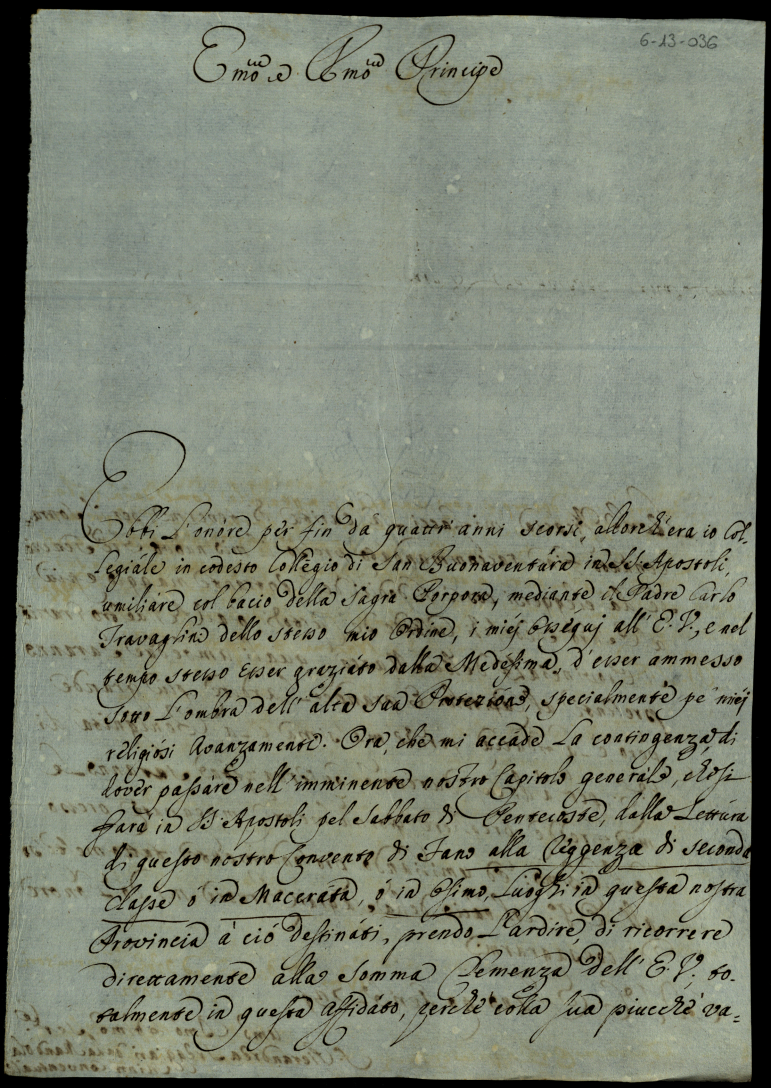 6-13-036
Emo e Rmo Principe
Ebbi l'onore per fin da quattr'anni scorsi, allorch'era io Col-
legiale in codesto Collegio di San Buonaventura in SS. Apostoli,
umiliare col bacio della Sagra Porpora, mediante il Padre Carlo
Travaglini dello stesso mio Ordine, i miej Osséquj all'E. V., e nel
tempo stesso esser graziato dalla Medesima, d'esser ammesso
sotto l'ombra dell'alta sua Protezione, specialmente pe' miej
religiosi Avanzamenti. Ora, che mi accade la contingenza di
dover passare nell'imminente nostro Capitolo generale, che si
farà in SS. Apostoli pel Sabbato di Pentecoste, dalla Lettura
di questo nostro Convento di Fano alla Reggenza di seconda
classe ò in Macerata, ò in Osimo, Luoghi in questa nostra
Provincia à ciò destinati, prendo l'ardire, di ricorrere
direttamente alla somma Clemenza dell'E. V.; to-
talmente in questa affidato, perchè colla sua piucchè va-